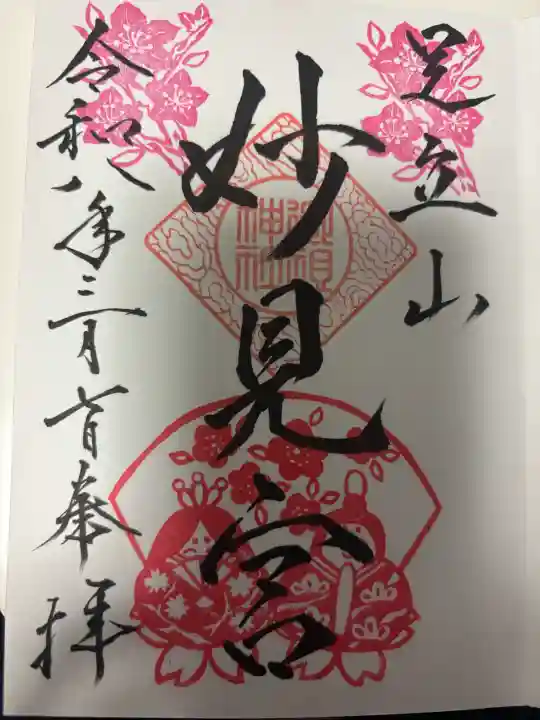 足立山
妙見宮
御祖神社
令和八年三月七日奉拝